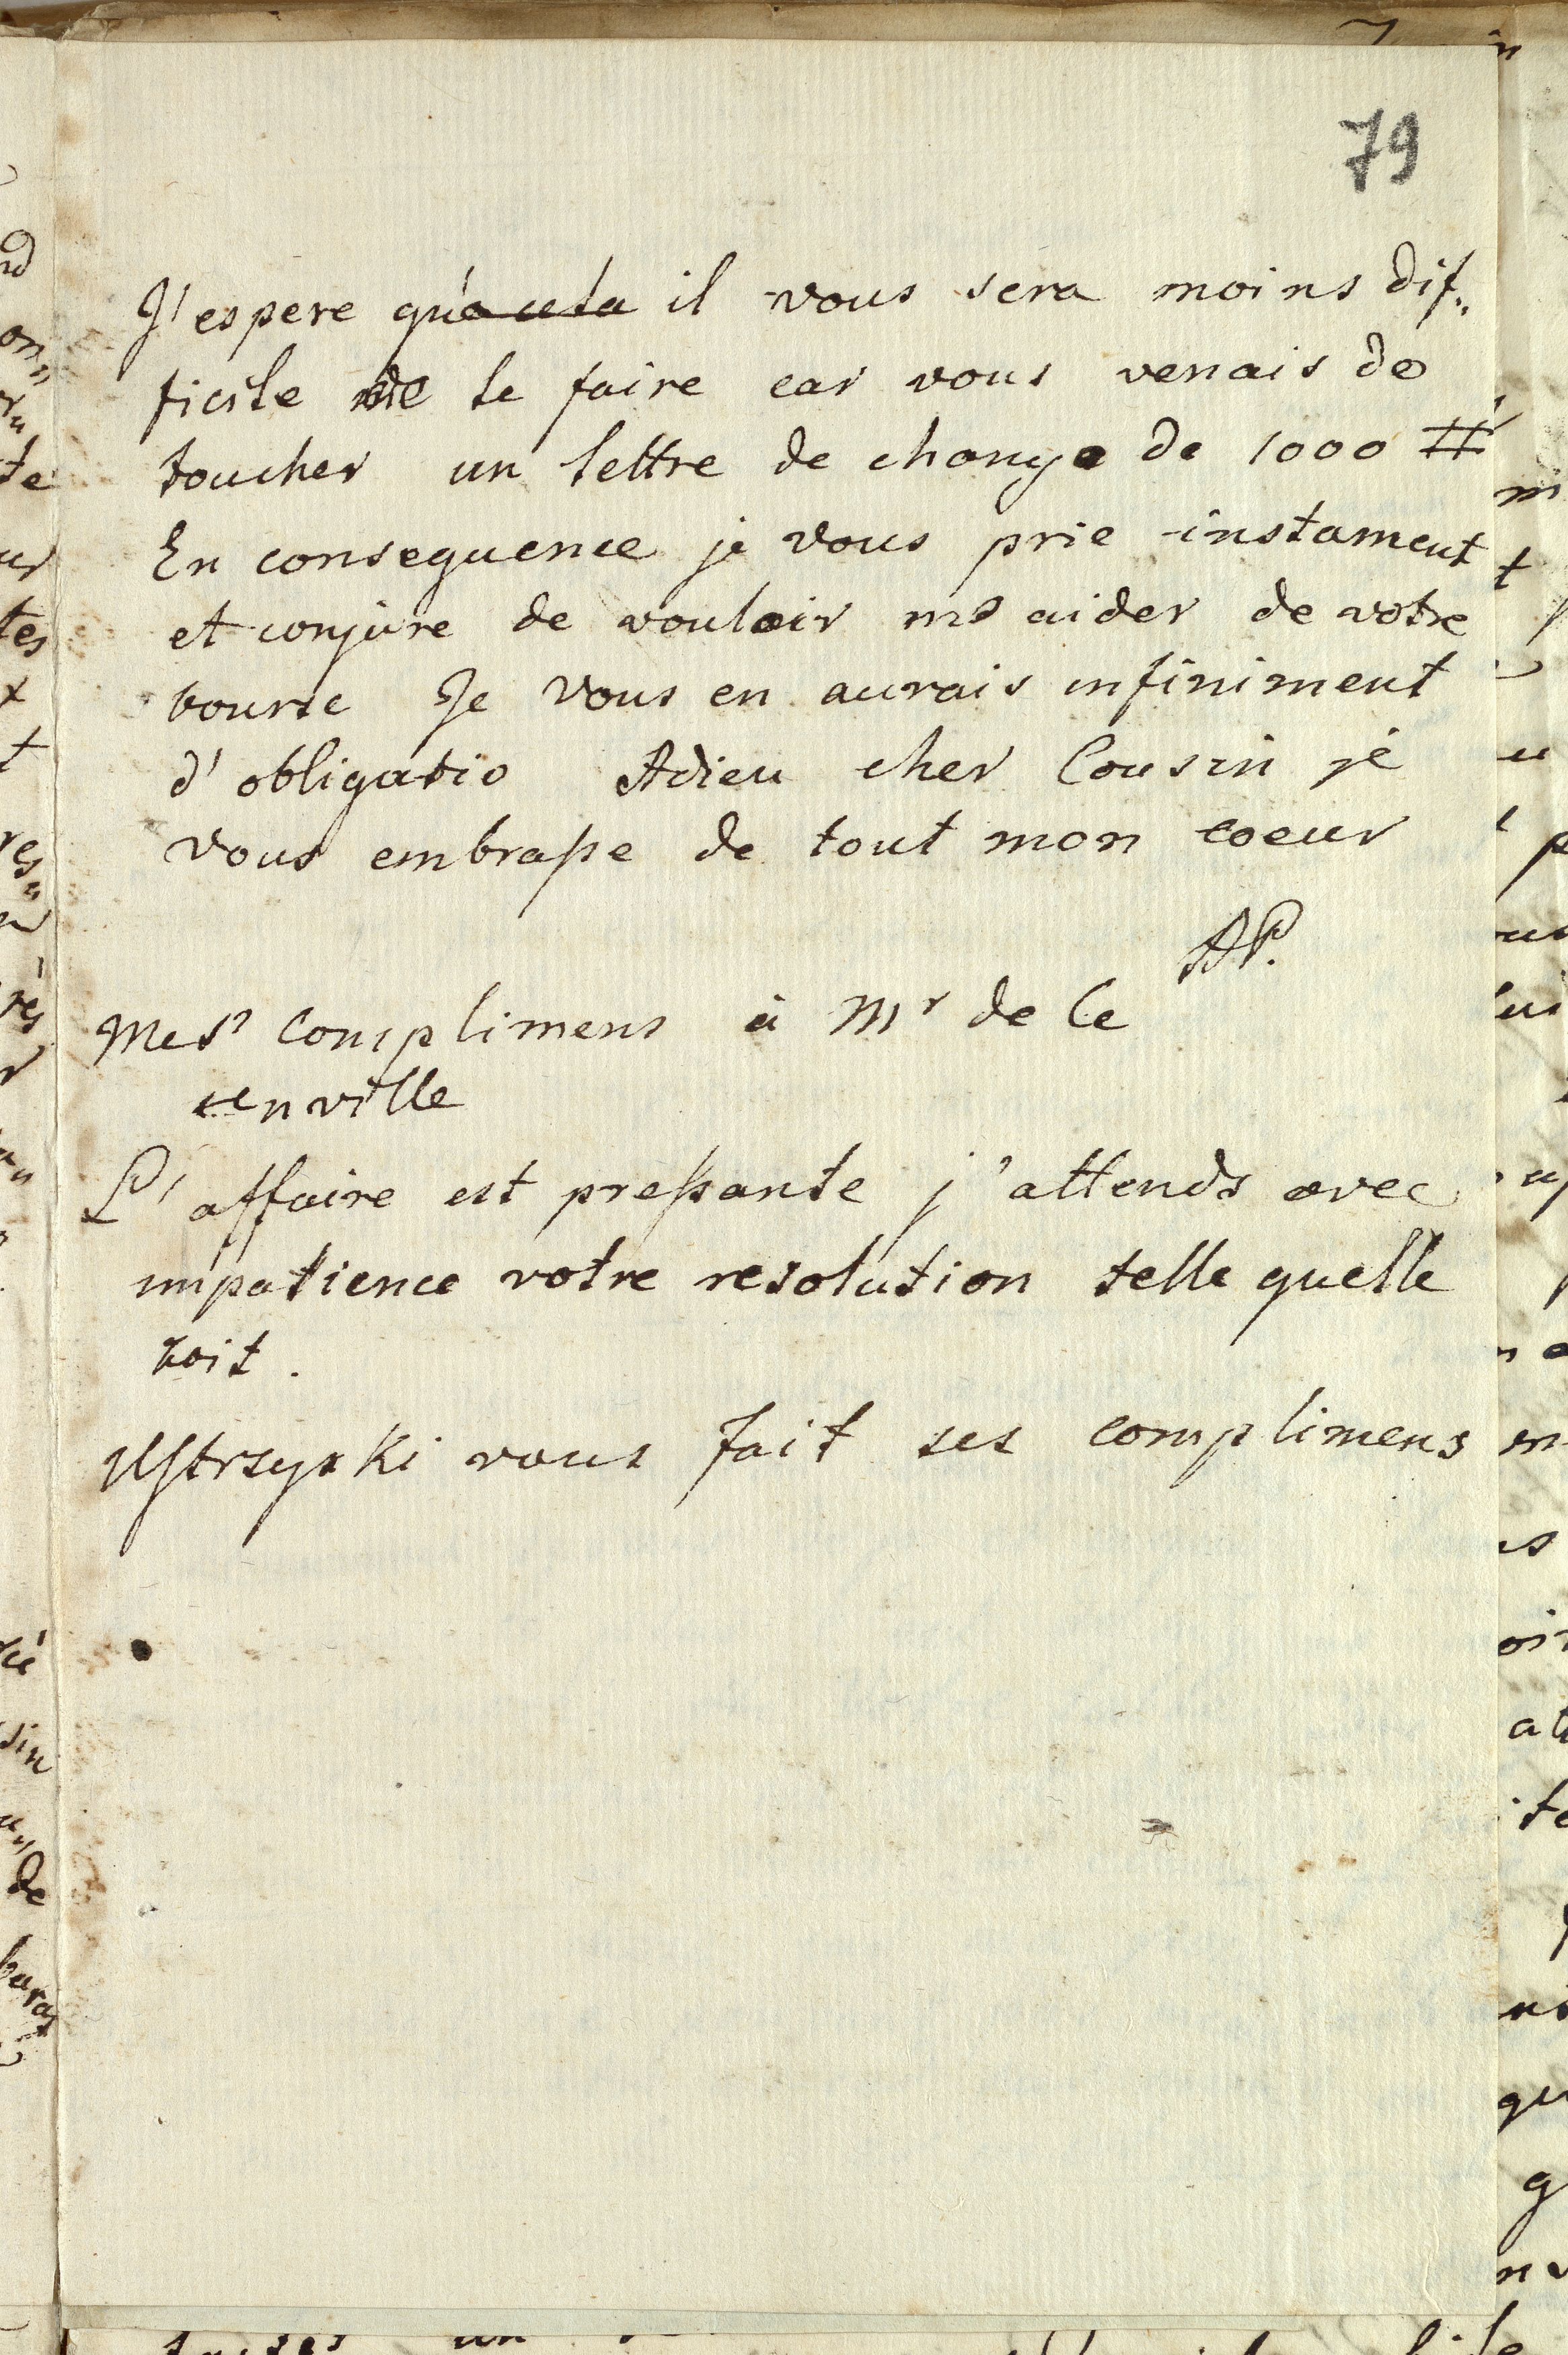 79
J'espere qu'a cela il vous sera moins dif„
ficile de le faire car vous venais de
toucher un lettre de change de 1000 #
En consequence je vous prie instament
et conjure de vouloir me aider de votre
bourse Je vous en aurais infiniment
d'obligatio Adieu cher Cousin je
vous embrasse de tout mon coeur
AP.
Mes complimens à Mr de Ce
enville
L'affaire est pressante j'attends avec
impatience votre resolution telle quelle
soit.
vous fait ses complimens